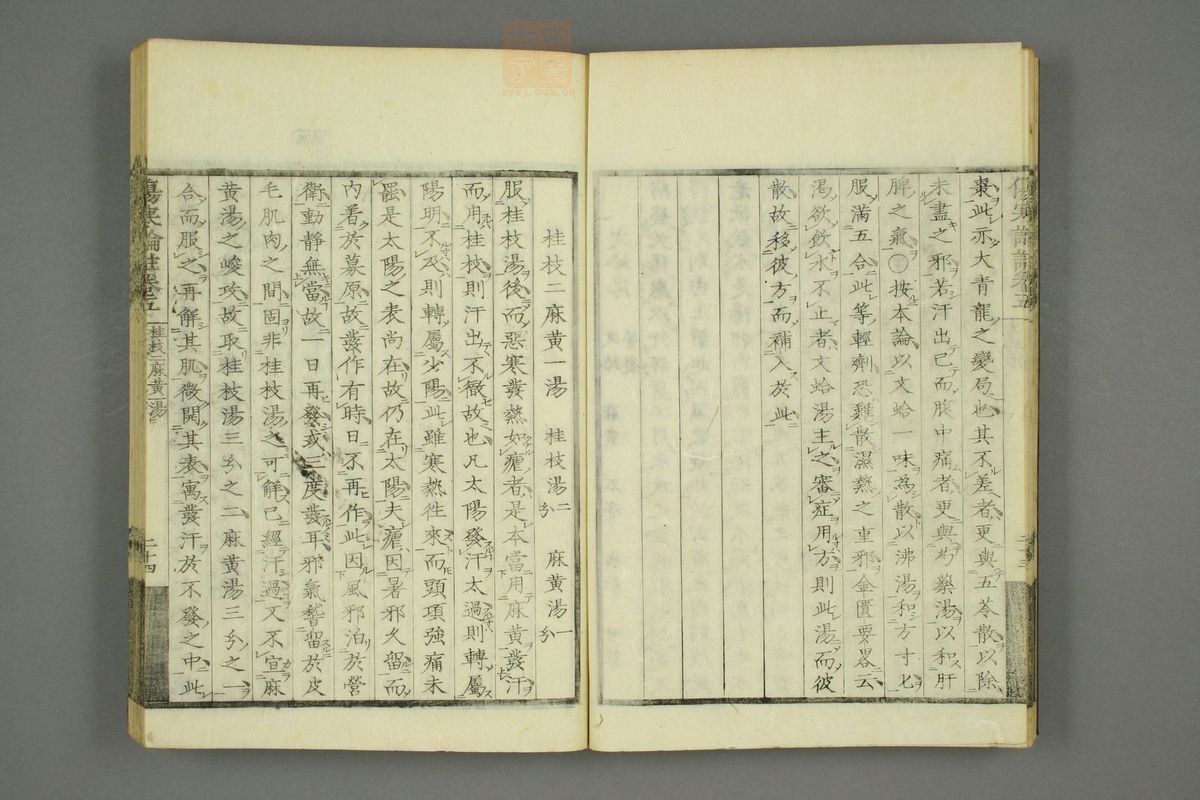 棗此亦大青龍之變局也其不差者更與五苓散以除
未盡之邪若汗出已而腹中痛者更與芍藥湯以和肝
脾之氣○按本論以文蛤一味為散以沸湯和方寸匕
服滿五合此等輕劑恐難散濕熱之重邪金匱要畧云
渴欲飲水不止者文蛤湯主之審症用方則此湯而彼
散故移彼方而補入於此
桂枝二麻黃一湯 桂枝湯二分 麻黃湯一分
服桂枝湯後而惡寒發熱如瘧者是本當用麻黃發汗
而用桂枝則汗出不徹故也凡太陽發汗太過則轉屬
陽明不及則轉屬少陽此雖寒熱徃來而頸項強痛未
罷是太陽之表尚在故仍在太陽夫瘧因暑邪久留而
內着於募原故發作有時日不再作此因風邪泊於營
衛動靜無當故一日再發或三度發耳邪氣嵇留於皮
毛肌肉之間固非桂枝湯之可解已經汗過又不宜麻
黃湯之峻攻故取桂枝湯三分之二麻黃湯三分之一
合而服之再解其肌微開其表寓發汗於不發之中此
傷寒論註卷五 桂枝二麻黃一湯 二十四